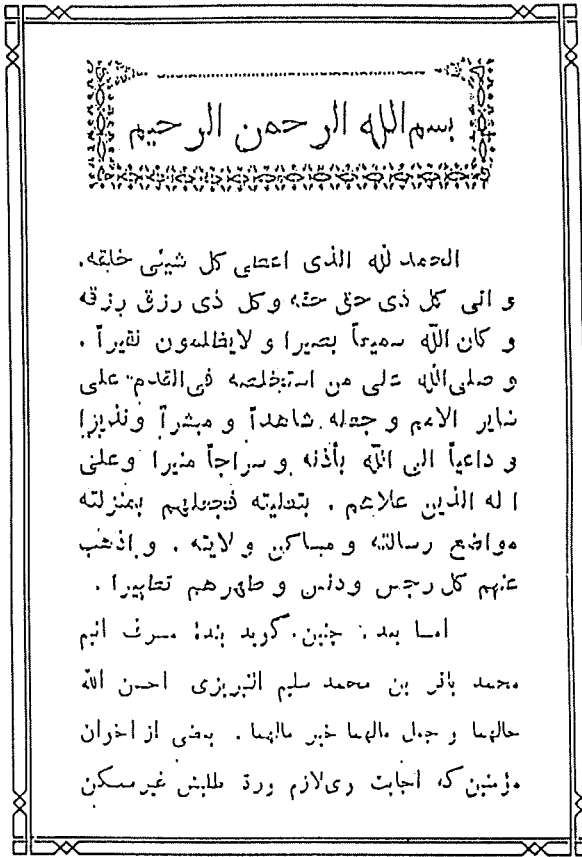 بسم الله الرحمن الرحيم
الحمد لله الذی اعطی کل شیئی خلقه.
و اتی کل ذی حق حقه و کل ذی رزق رزقه
و کان الله سمیعاً بصیرا و لایظلمون نقیراً .
و صلی الله علی من استخلصه فی القدم علی
سایر الامم و جعله شاهداً و مبشراً ونذیرا
و داعیاً الی الله بأذنه و سراجاً منیرا وعلی
اله الذین علاهم . بتعلیته فجعلهم بمنزلته
مواضع رسالته و مساکن ولایته . و اذهب
عنهم کل رجس ودنس و طهرهم تطهیرا .
اما بعد : چنین. گوید بندهٔ مسرف اثیم
محمد باقر بن محمد سلیم التبریزی احسن الله
حالهما و جعل مالهما خیر مالهما . بعضی از اخوان
مؤمنین که اجابت وی لازم ورد طلبش غیر ممکن